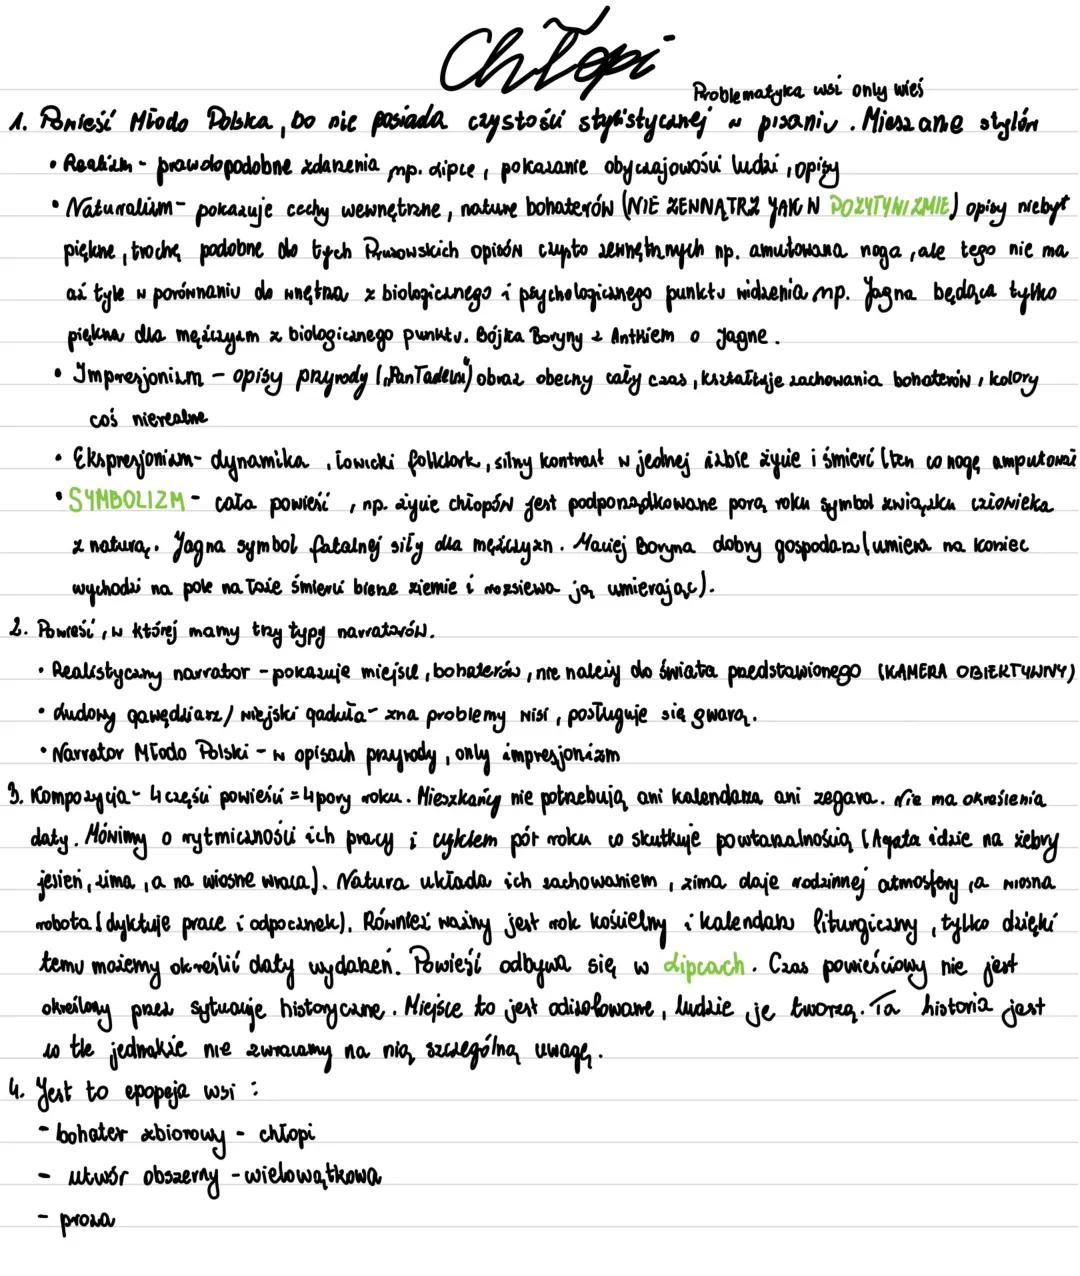 Chłopi
Problematyka wsi only wieś
1. Powieść Młodo Polska, bo nie posiada czystości stylistycznej w pisaniu. Mieszane stylów
• Realizm - prawdopodobne zdarzenia np. Lipce, pokazanie obyczajowości ludzi, opisy
• Naturalizm - pokazuje cechy wewnętrzne, nature bohaterów (NIE ZEWNĄTRZ JAK W POZYTYWIZMIE) opisy niebyt
piękne, trochę podobne do tych Prusowskich opisów czysto zewnętrznych np. amutowana noga, ale tego nie ma
aż tyle w porównaniu do wnętrza z biologicznego i psychologicznego punktu widzenia np. Jagna będąca tylko
piękna dla mężczyzm z biologicznego punktu. Bójka Boryny z Antkiem o Jagne.
• Impresjonizm - opisy przyrody („Pan Tadeusz") obraz obecny cały czas, kształtuje zachowania bohaterów, kolory
coś nierealne
• Ekspresjonizm - dynamika, łowicki folklork, silny kontrast w jednej izbie życie i śmierć (ten co nogę amputował
• SYMBOLIZM - cała powieść, np. życie chłopów jest podporządkowane porą roku symbol związku człowieka
z naturą. Jagna symbol fatalnej siły dla mężczyzn. Maciej Boryna dobry gospodarz (umiera na koniec
wychodzi na pole na łoże śmierci bierze ziemie i rozsiewa ją umierając).
2. Powieść, w której mamy trzy typy narratorów.
• Realistyczny narrator - pokazuje miejsce, bohaterów, nie należy do świata przedstawionego (KAMERA OBIEKTYWNY)
• Ludowy gawędziarz / wiejski gaduła - zna problemy wisi, posługuje się gwarą.
• Narrator Młodo Polski - w opisach przyrody, only impresjonizm
3. Kompozycja - 4 części powieści = 4 pory roku. Mieszkańcy nie potrzebują ani kalendarza ani zegara. Nie ma określenia
daty. Mówimy o rytmiczności ich pracy i cyklem pór roku co skutkuje powtarzalnością (Agata idzie na żebry
jesień, zima, a na wiosne wraca). Natura układa ich zachowaniem, zima daje rodzinnej atmosfery, a wiosna
robota (dyktuje prace i odpoczynek). Również ważny jest rok kościelny i kalendarz liturgiczny, tylko dzięki
temu możemy określić daty wydarzeń. Powieść odbywa się w Lipcach. Czas powieściowy nie jest
określony przez sytuacje historyczne. Miejsce to jest odizolowane, ludzie je tworzą. Ta historia jest
w tle jednakże nie zwracamy na nią szczególną uwagę.
4. Jest to epopeja wsi :
- bohater zbiorowy - chłopi
- utwór obszerny - wielowątkowa
- proza